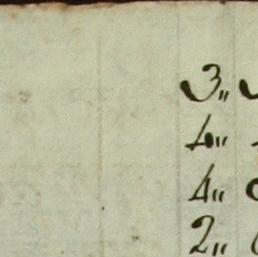 3 〃
4 〃
4 〃
2 〃